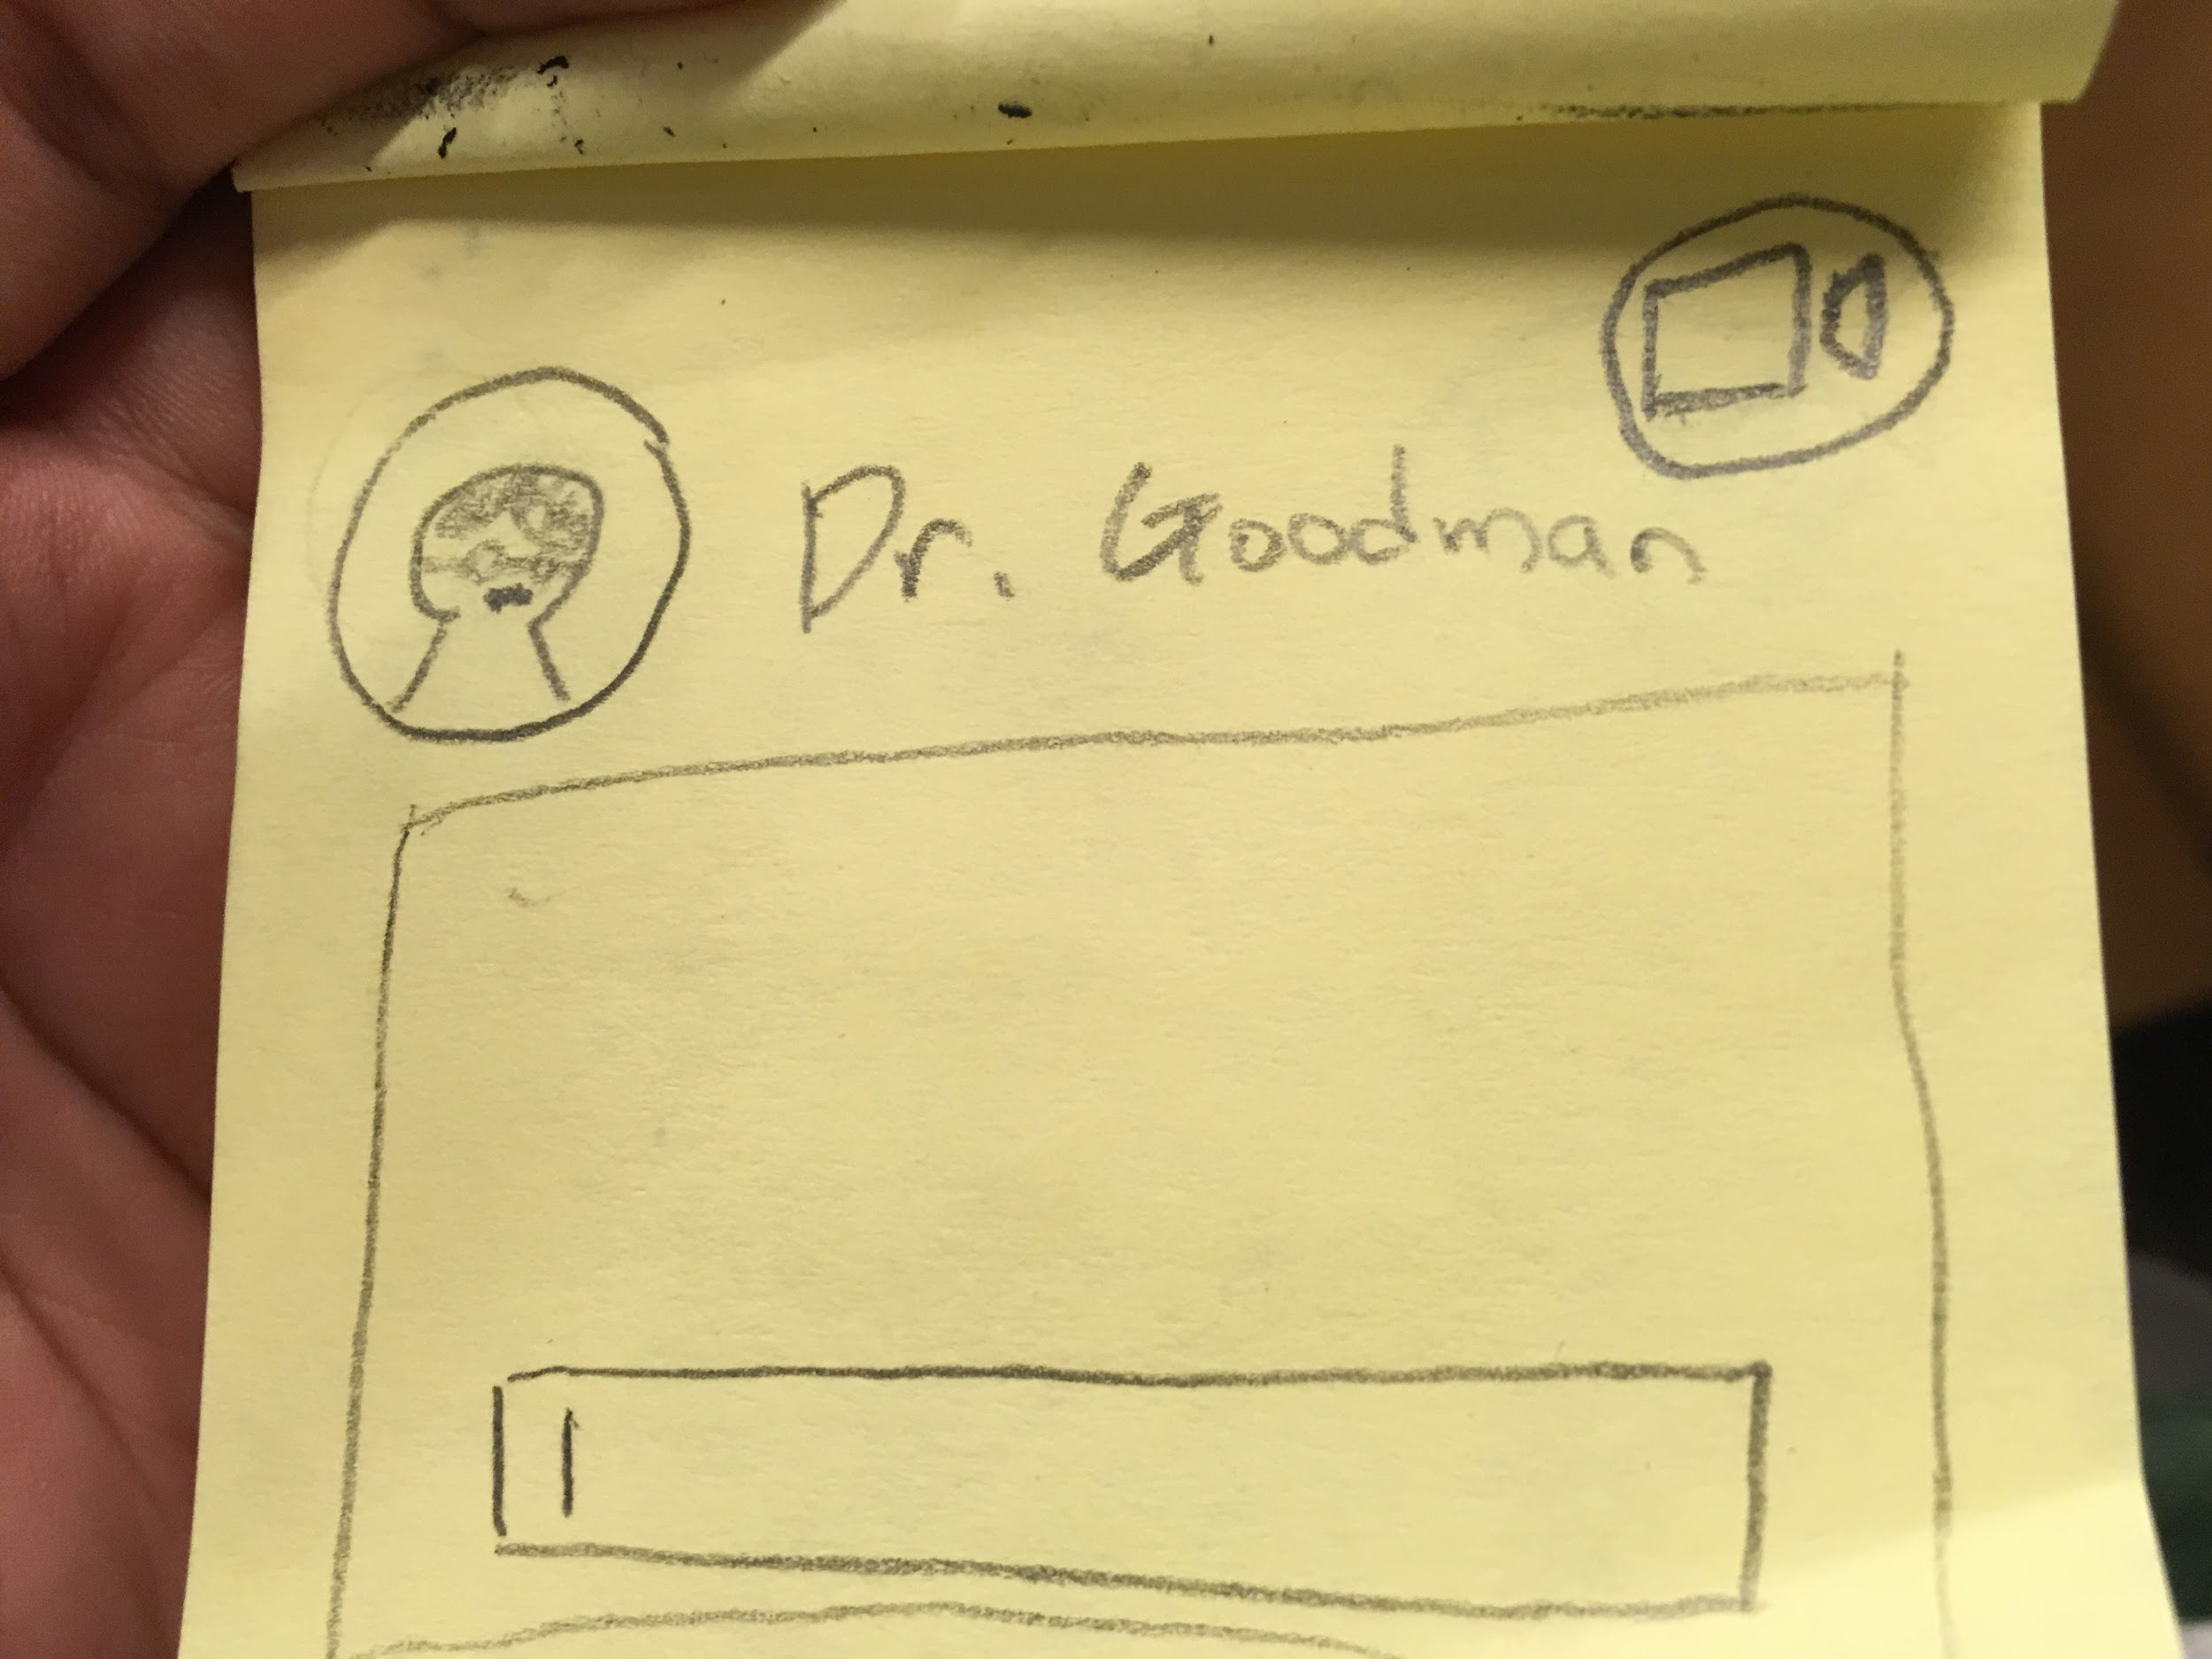 Dr. Goodman